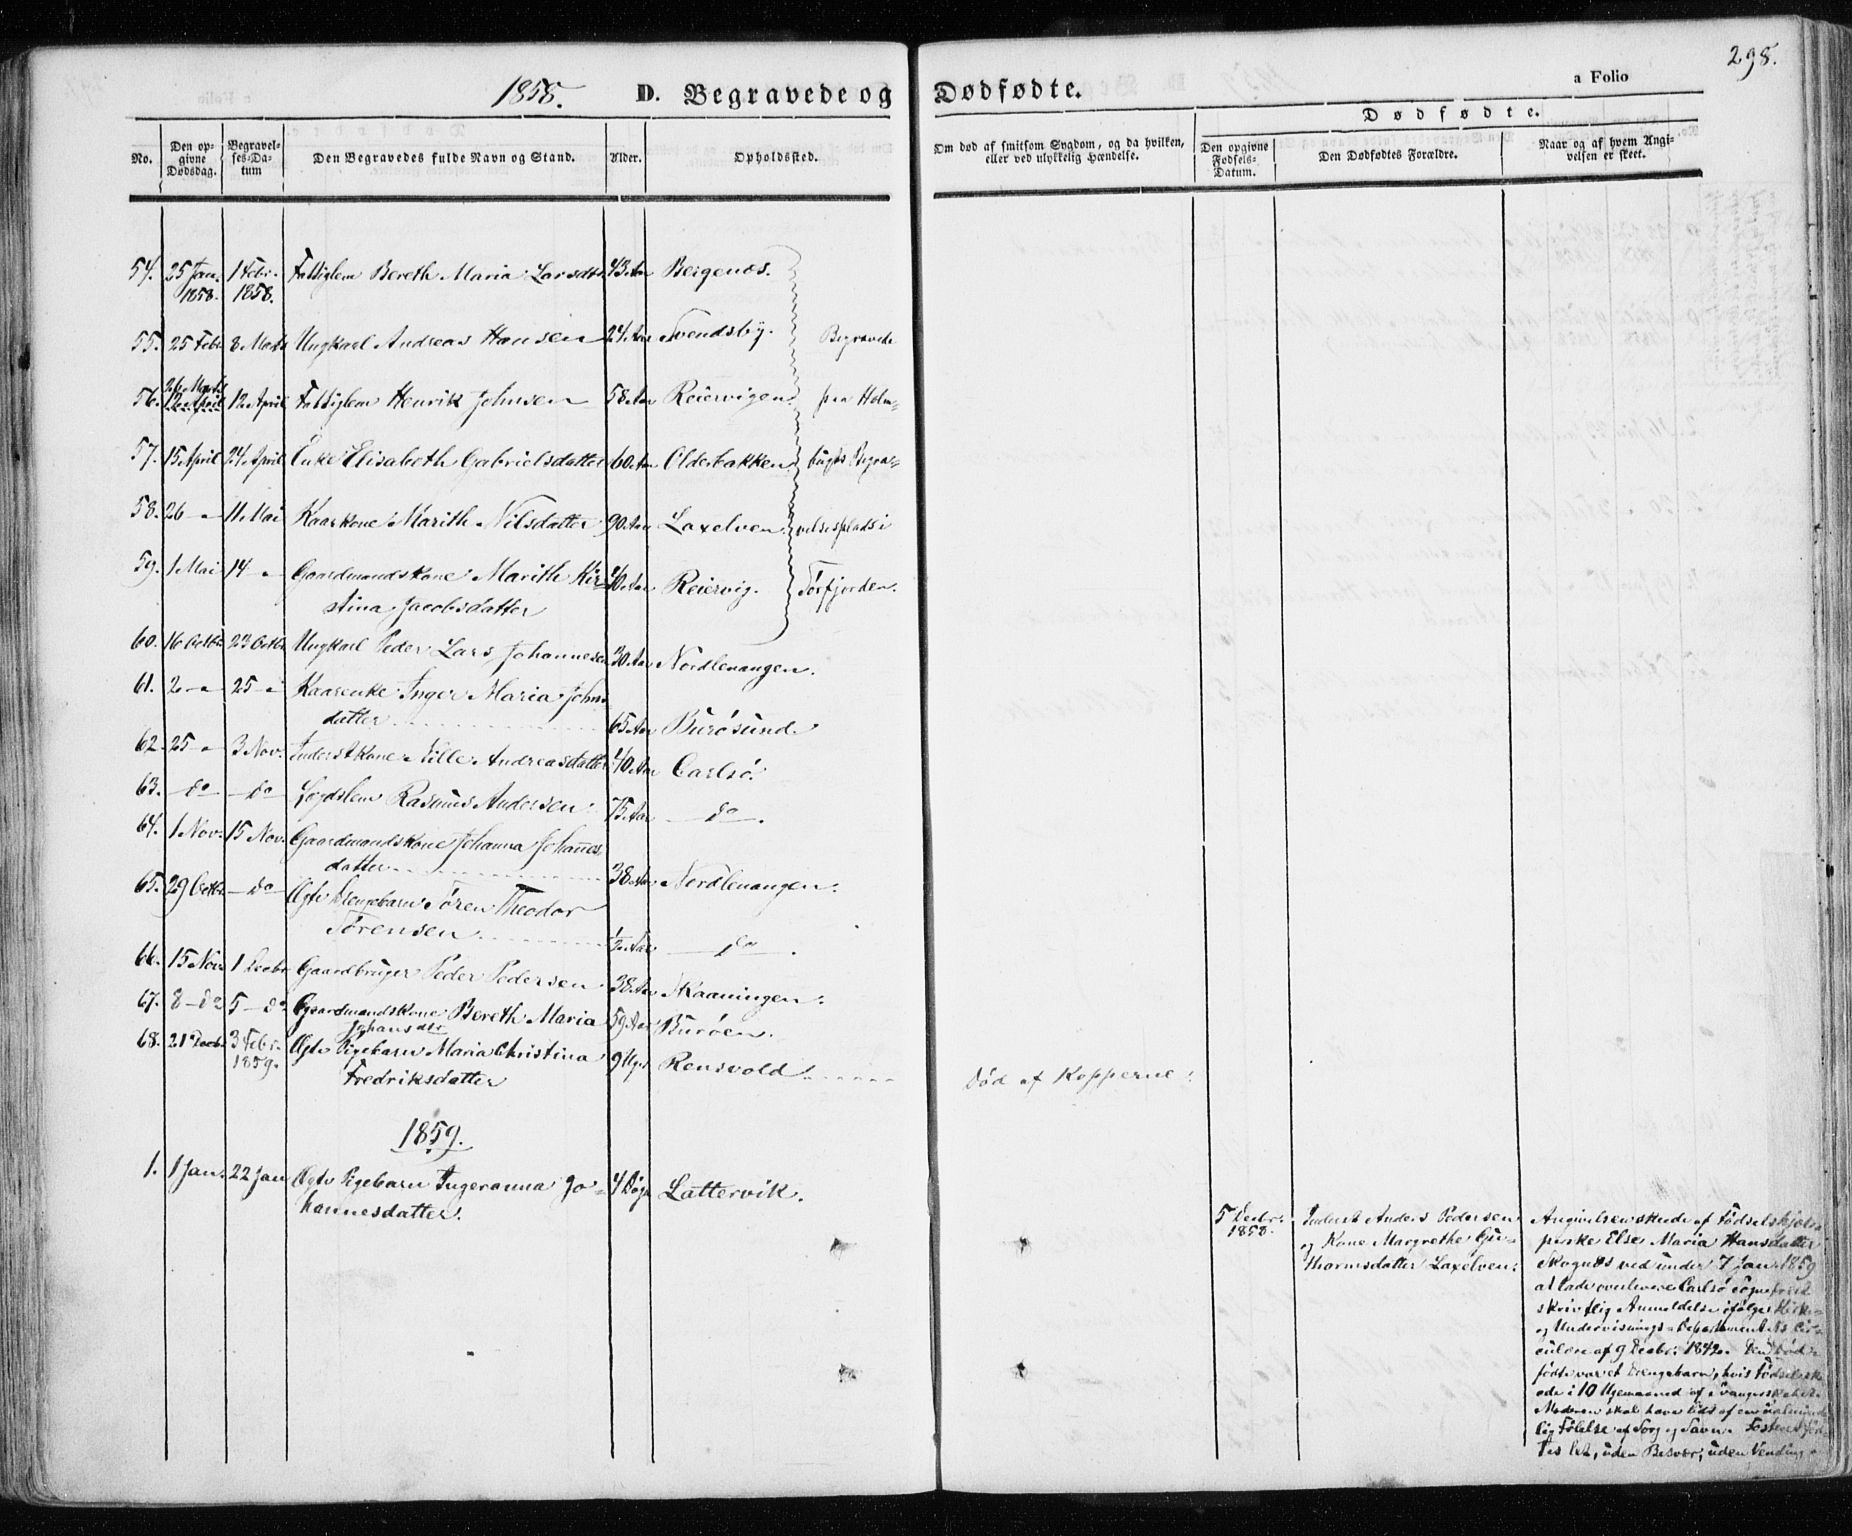 298.
1858. D. Begravede og Dødfødte. a Folio
No. Den opgivne Dødsdag. Begravelses-Datum Den Begravedes fulde Navn og Stand. Alder. Opholdssted. Om død af smitsom Sygdom, og da hvilken, eller ved ulykkelig Hændelse. Dødfødte. Den opgivne Fødsels-Datum. Den Dødfødtes Forældre. Naar og af hvem Angivelsen er skeet.
54. 25 Jan. 1858. 1 Febr. 1858. Fattiglem Bereth Maria Larsdtr 43 Aar Bergenæs.
55. 25 Febr 8 Marts Ungkarl Andreas Hansen 24 Aar Svendsby. Begravede
56. 26 Marts 12 April 12 April Fattiglem Henrik Johnsen 58 Aar Reiervigen paa Holm-
57. 15 April 24 April Enke Elisabeth Gabrielsdatter 60 Aar Olderbakken bugts Begra-
58. 26 — 11 Mai Kaarkone Marith Nilsdatter 90 Aar Laxelven velsesplads i
59. 1 Mai 14 — Gaardmandskone Marith Kir-
stina Jacobsdatter 40 Aar Reiervig. Sørfjorden.
60. 16 Octbr 23 Octbr Ungkarl Peder Lars Johannesen 30 Aar Nordlenangen.
61. 2 — 25 — Kaarenke Inger Maria Johns
datter 65 Aar Burøsund
62. 25 — 3 Nov. Inderstkone Nille Andreasdatter 40 Aar Carlsø.
63. — do — do Lægdslem Rasmus Andersen 75 Aar — do —.
64. 1 Nov. 15 Nov. Gaardmandskone Johanna Johanes
datter 38 Aar Nordlenangen.
65. 29 Octbr — do — Ægte Drengebarn Søren Theodor
Sørensen ½ Aar — do —.
66. 15 Nov. 1 Decbr Gaardbruger Peder Pedersen 38 Aar Skaaningen.
67. 8 — do 5 — do Gaardmandskone Bereth Maria
Johansdtr 59 Aar Burøen.
68. 21 Decbr 3 Febr. 1859. Ægte Pigebarn Maria Christina
Fredriksdatter 9 Uger Rensvold Død af Kopperne.
1859.
1. 1 Jan. 22 Jan Ægte Pigebarn Ingeranna Jo-
hannesdatter. 4 Døgn Lattervik.
5 Decbr. 1858. Inderst Anders Pedersen
og Kone Margrethe Gu-
thormsdatter Laxelven.
Angivelsen skede af Fødselshjel-
perske Else Maria Hansdatter
Skognæs ved under 7 Jan. 1859
at lade overlevere Carlsø Sognepræst
skriftlig Anmeldelse ifølge Kirke-
og Undervisnings-Departementets Cir-
culære af 9 Decbr. 1842. Den Død-
fødte var et Drengebarn, hvis Fødsel sk-
ede i 10 Ugemaaned af Svangerskabet.
Moderen skal have lidt af en ualminde-
lig Følelse af Sorg og Savn. Fosteret
let, uden Besvær, uden Vending